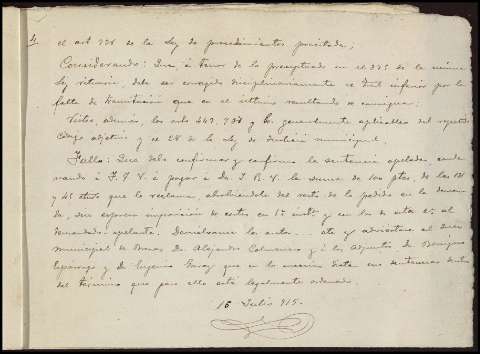 4
el art 738 de la Ley de procedimientos precitada;
Considerando: Que, á tenor de lo preceptuado en el 335 de la misma
Ley rituaria, debe ser corregido disciplinariamente el Tral inferior por la
falta de tramitación que en el último resultando se consigna;
Vistos, además, los arts 349, 738 y generalmente aplicables del repetido
Código adjetivo y el 28 de la Ley de Justicia municipal.
Fallo: Que debo confirmar y confirmo la sentencia apelada, conde
nando á F. I. V. á pagar á D. J. R. V. la suma de 100 ptas. de las 121
y 45 cts que le reclama, absolviéndole del resto de lo pedido en la deman
da, sin expresa imposición de costas en 1ª inst. y con las de esta 2ª al
demandado apelante. Devuélvanse los autos y adviértase al Juez
municipal de D. Alejandro y á los adjuntos D.
y D. Eugenio que en lo sucesivo dicte sus sentencias dentro
del término que para ello está legalmente ordenado.
15 Julio 915.